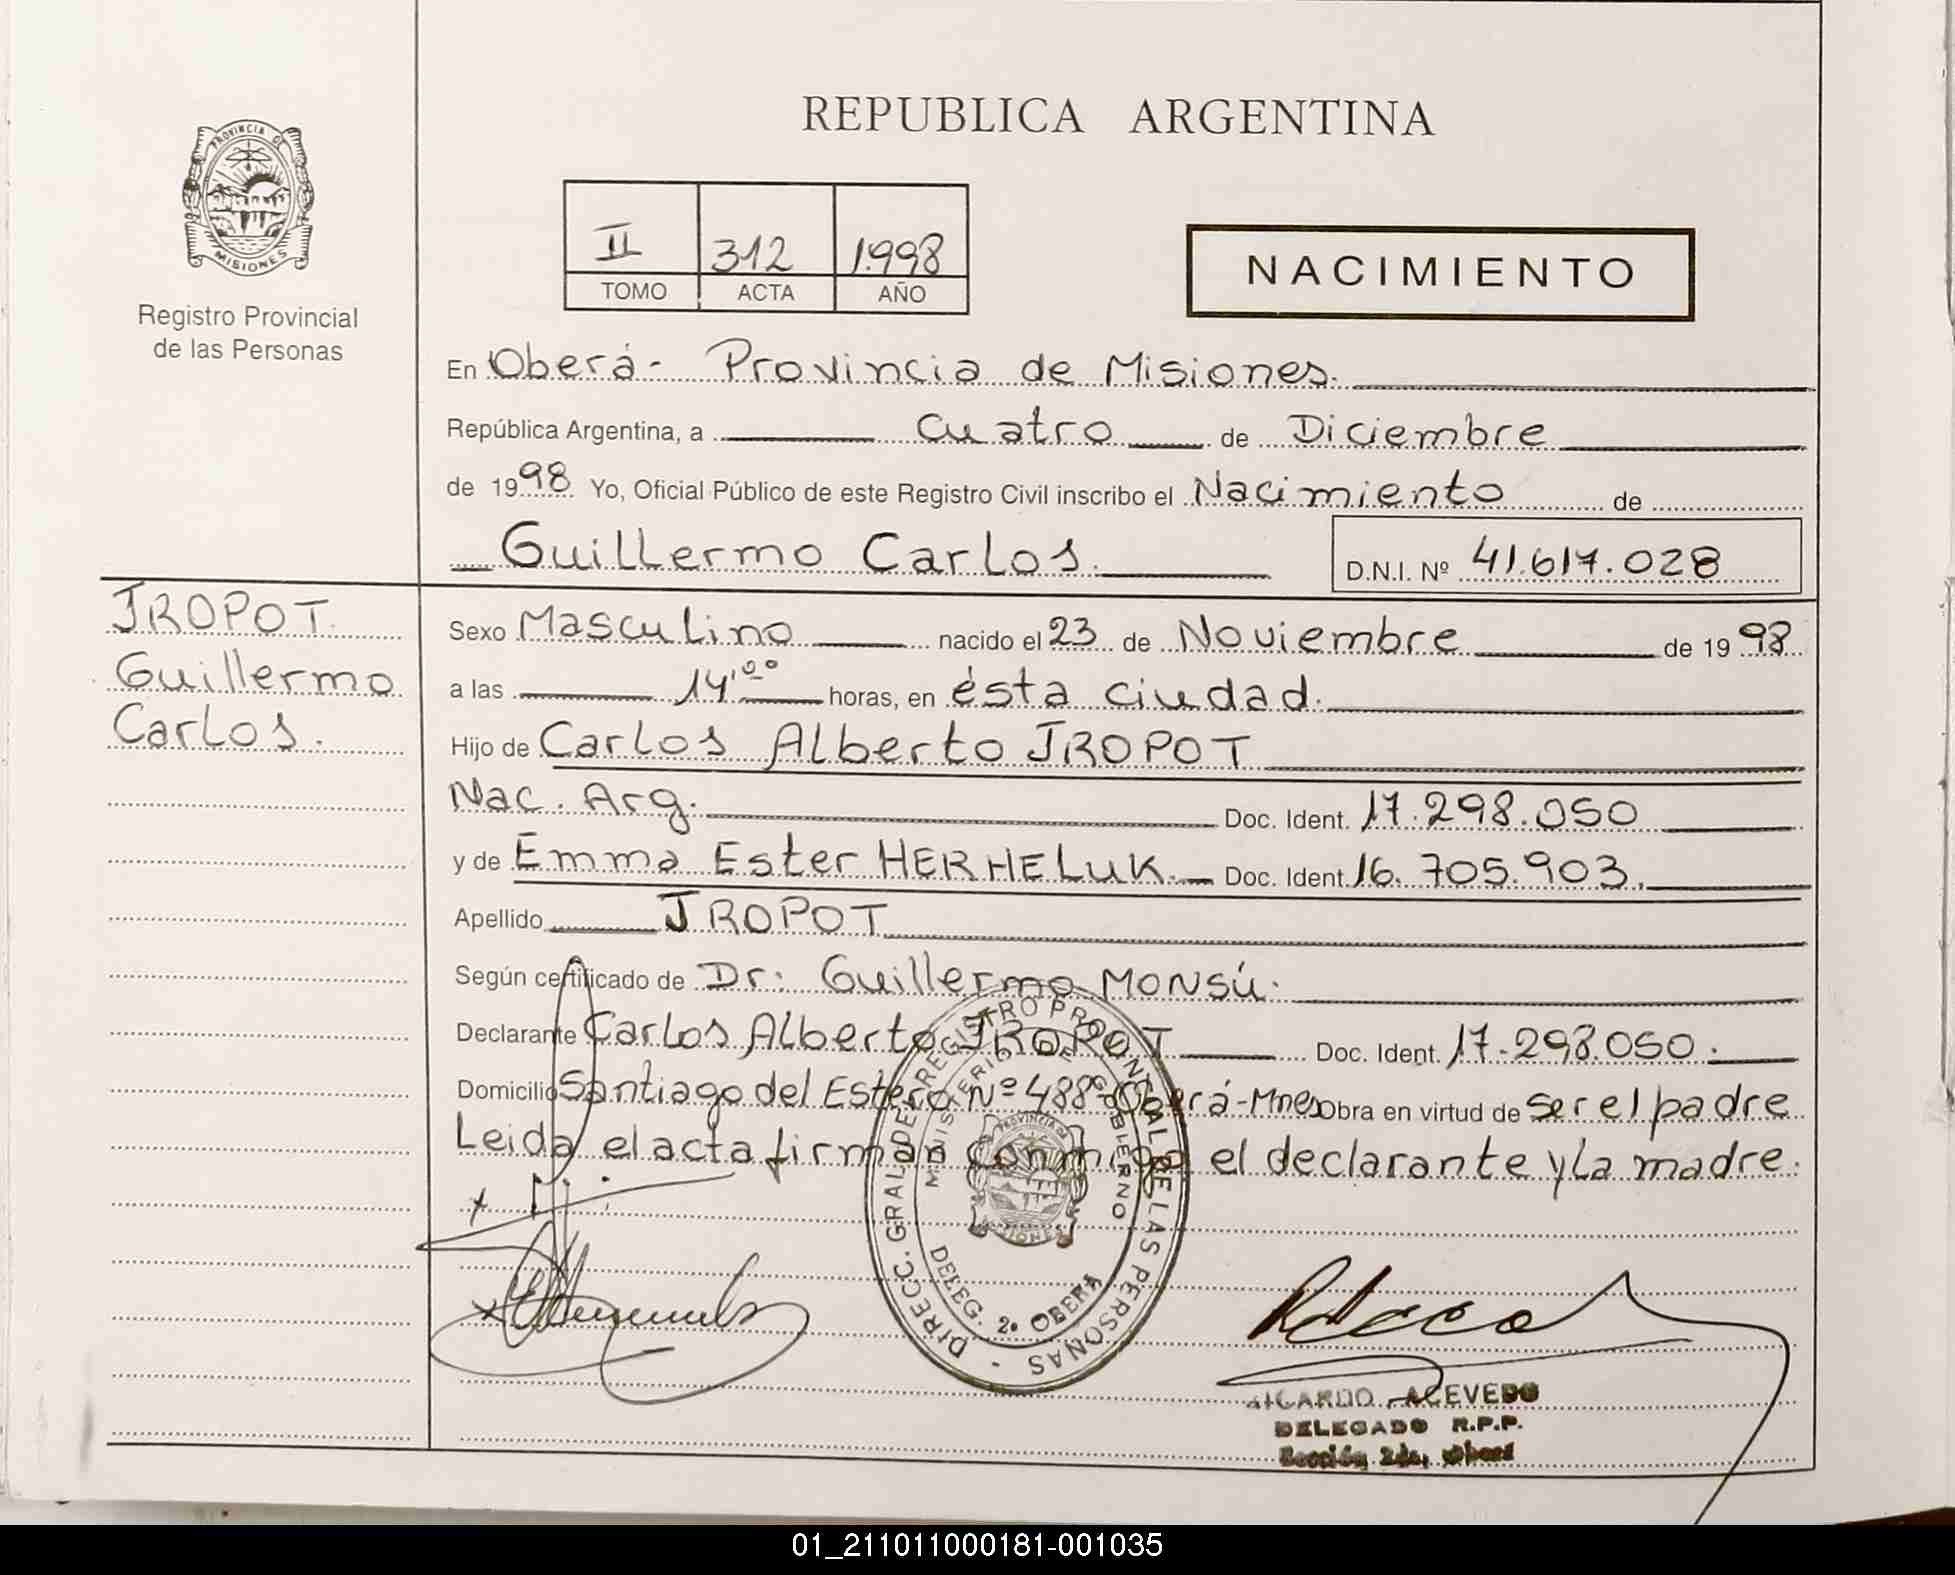 REPUBLICA ARGENTINA
PROVINCIA DE
MISIONES
Registro Provincial
de las Personas
II 312 1.998
TOMO ACTA AÑO
NACIMIENTO
En Oberá - Provincia de Misiones.
República Argentina, a cuatro de Diciembre
de 1998 Yo, Oficial Público de este Registro Civil inscribo el Nacimiento de
Guillermo Carlos. D.N.I. Nº 41.617.028
JROPOT
Guillermo
Carlos.
Sexo Masculino nacido el 23 de Noviembre de 1998
a las 14,00 horas, en ésta ciudad.
Hijo de Carlos Alberto JROPOT
Nac. Arg. Doc. Ident. 17.298.050
y de Emma Ester HERHELUK. Doc. Ident. 16.705.903.
Apellido JROPOT
Según certificado de Dr: Guillermo MONSÚ.
Declarante Carlos Alberto JROPOT Doc. Ident. 17.298.050.
Domicilio Santiago del Estero Nº 488-Oberá-Mnes Obra en virtud de ser el padre
Leida el acta firman conmigo el declarante y La madre.
DIRECC. GRAL DE REGISTRO PROVINTAL DE LAS PERSONAS -
MINISTERIO DE GOBIERNO
PROVINCIA DE
MISIONES
DELEG. 2ª OBERA
RICARDO ACEVEDO
DELEGADO R.P.P.
Sección 2da, Oberá
01_211011000181-001035